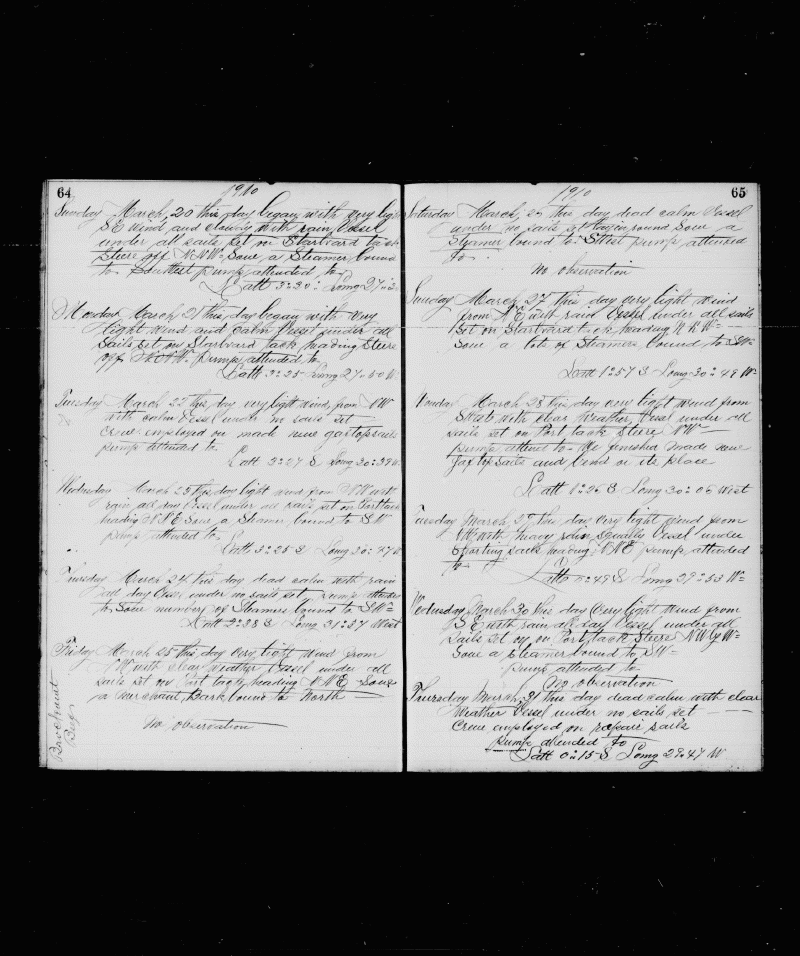 64
1910
Sunday March, 20 this day began with very light
S E wind and cloudy with rain Vessel
under all sails set on Starboard tack
Steere off N.N.W= Saue a Steamer bound
to pump attended to
Latt 3=20= Long 27=
Monday March 21 this day began with very
light wind and calm Vessel under all
Sails set on Starboard tack heading Steere
off pump attended to
Latt 3=25= Long 27=50 W
Tuesday March 22 this day very light wind, from NW
with calm Vessel under no sails set
Crew employed on made new gaftopsails
pump attended to
Latt 3=27 S Long 30=39
Wednesday March 23 this day light wind from NW with
rain all day Vessel under all sails set on Porttack
heading Saue a Steamer bound to SW
pump attended to
Latt 3=25 S Long 30=47
Thursday March 24 this day dead calm with rain
all day Vessel under no sails set pump attended
to Saue number of Steamers bound to SW=
Latt 2=38 S Long 31=37 West
Friday March 25 this day very light wind from
NW with clear weather Vessel under all
sails set on Port tack heading N.N.E Saue
a merchant Bark bound to North
No observation
65
1910
Saturday March, 26 this day dead calm Vessel
under no sails set rain Saue a
Steamer bound to pump attended
to
No observation
Sunday March 27 this day very light wind
from N.E with rain Vessel under all sails
set on Starboard tack heading
Saue a lots of Steamers bound to SW=
Latt 1=57 S Long 30=49 W=
Monday March 28 this day very light wind from
with clear Weather, Vessel under all
sails set on Port tack Steere NW
pump attend to We finishid made new
gaftopsails and bend on its place
Latt 1= S Long 30=06 West
Tuesday March 29 this day very light wind from
with heavy rain squally Vessel under
sails heading N.N.E pump attended
to
Latt 0=49 S Long 29=53 W=
Wednesday March 30 this day very light wind from
S E with rain all day Vessel under all
sails set on Port tack Steere N.W.
Saue a Steamer bound to SW=
pump attended to
No observation
Thursday March 31 this day dead calm with clear
Weather Vessel under no sails set
Crew employed on repair sails
pump attended to
Latt 0=15 S Long 29=47 W